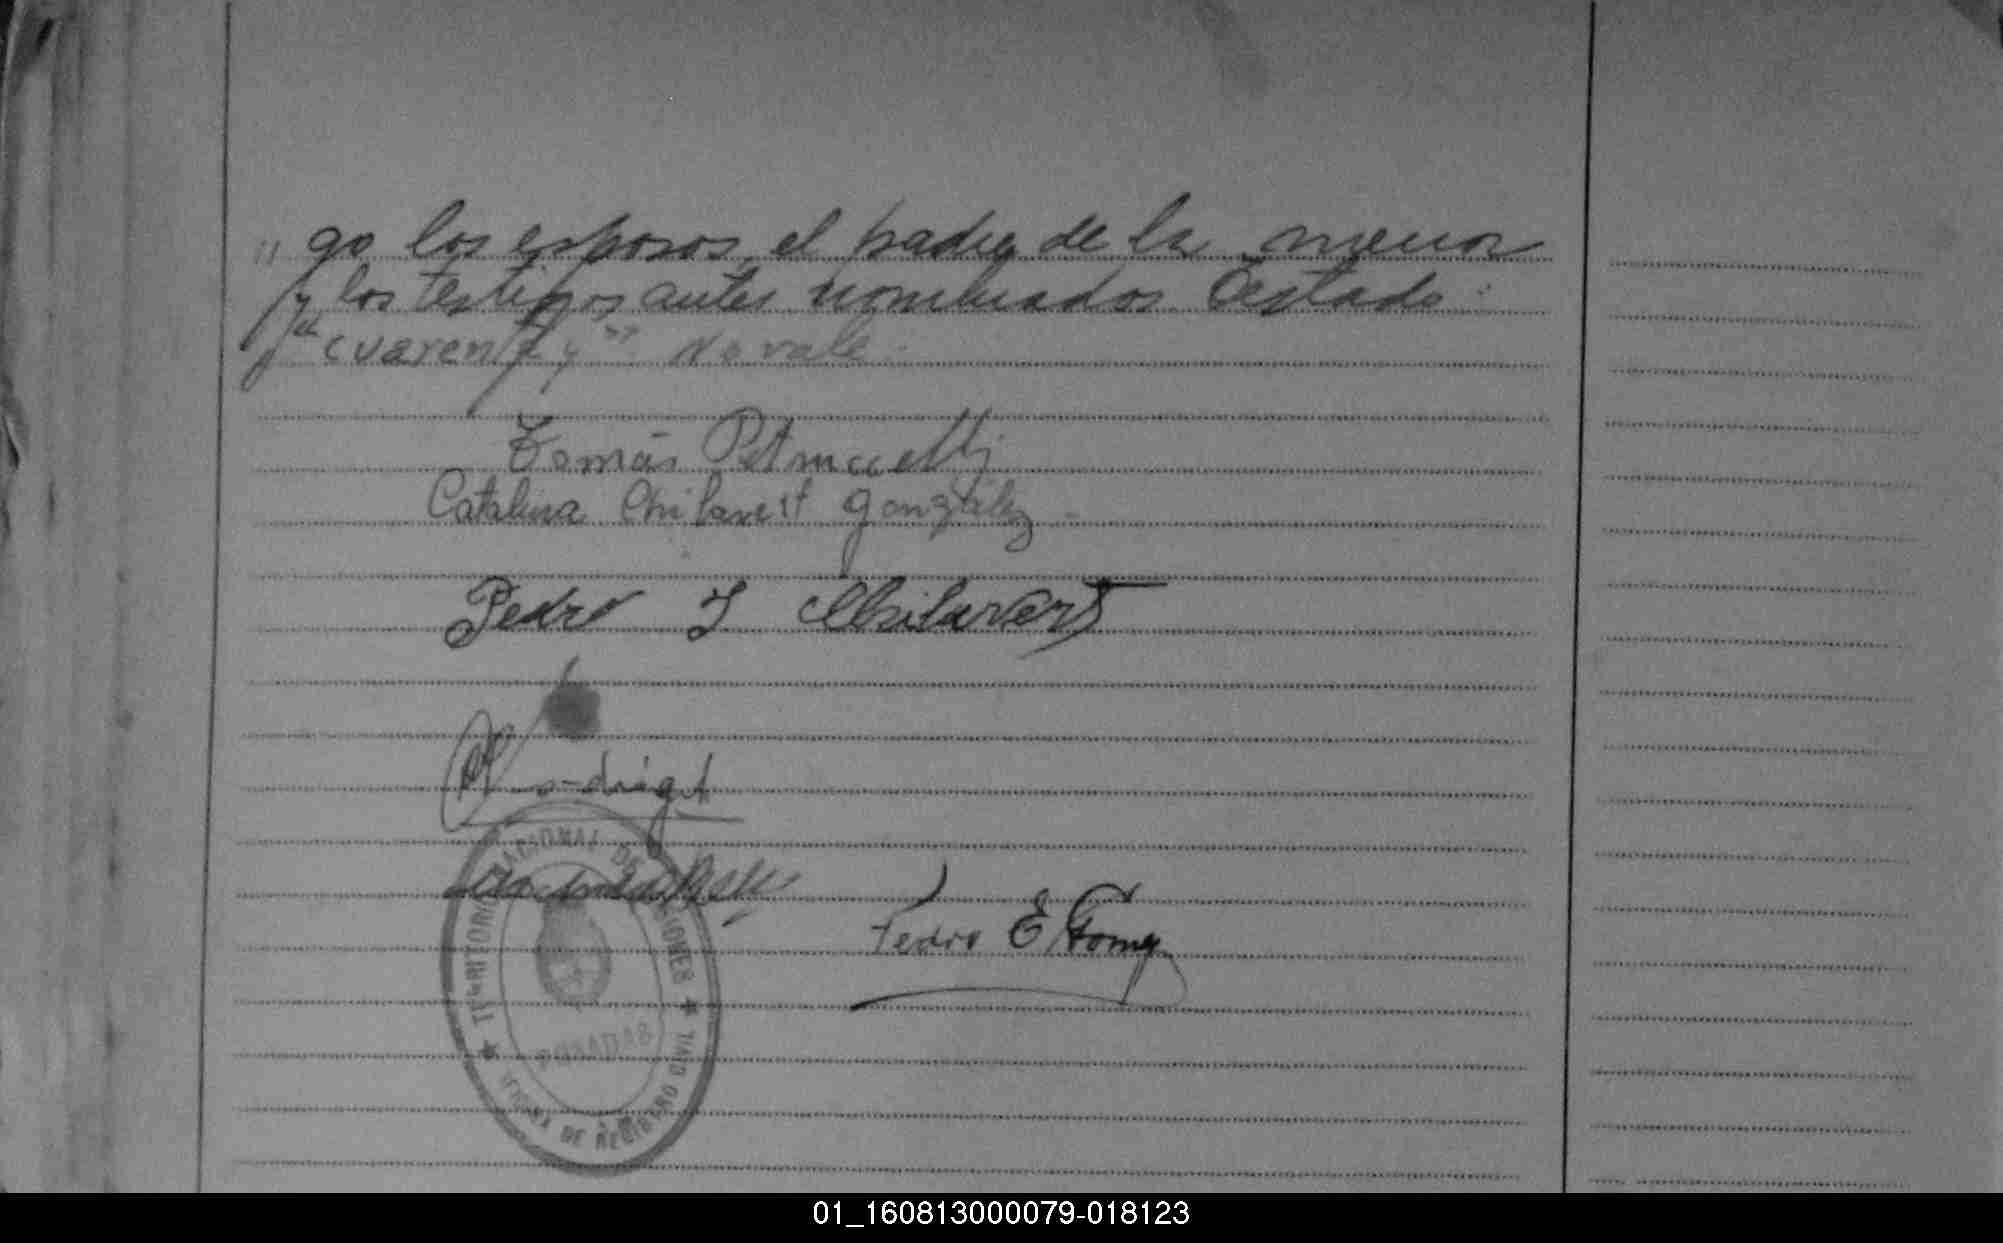 " go los esposos, el padre de la menor
y los testigos antes nombrados. Testado:
"cuarenta y" No vale.
Tomás Petruccelli
Catalina Chilavert González
Pedro I Chilavert
Pedro E Gomez
★ TERRITORIO NACIONAL DE MISIONES ★
POSADAS
OFICINA DE REGISTRO CIVIL
01_160813000079-018123